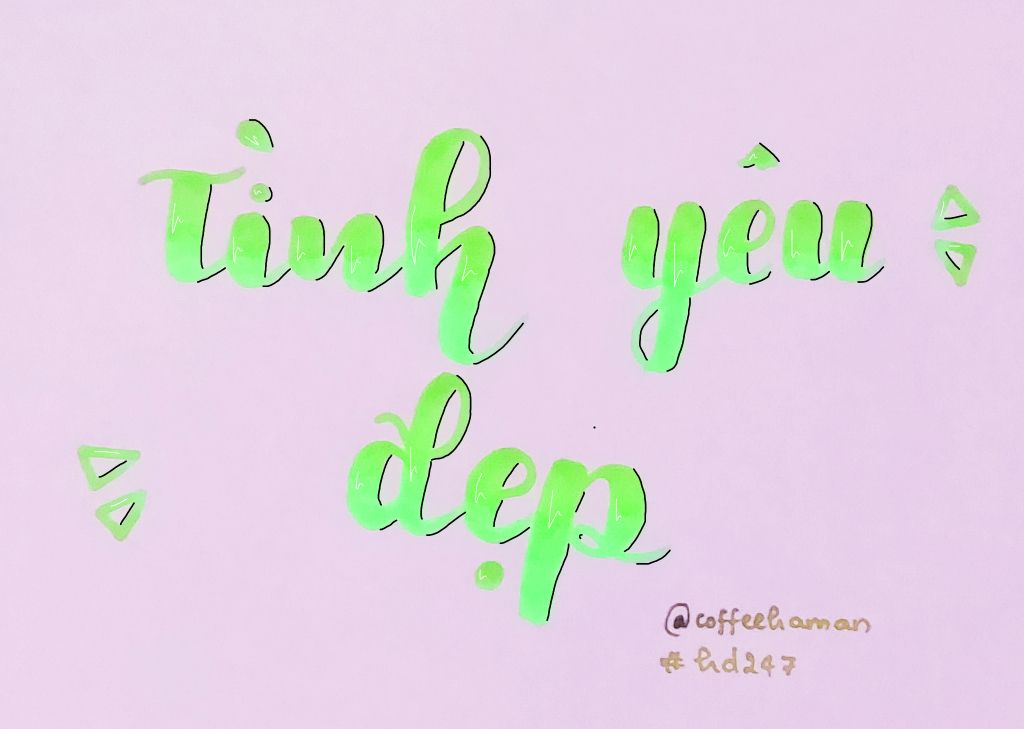 Tình yêu
đẹp
@coffeehaman
#hd247